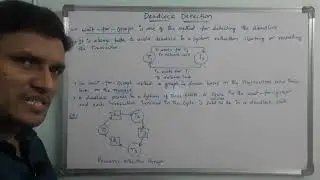 Deadlock Detection
Wait-for-Graph is one of the method for detecting the deadlock
It is always better to avoid deadlock in a system rather than aborting or restarting
the Transaction
T₁ waits for T₂
to release lock
T₂ waits for T₁
to release lock
In Wait-for-Graph method a graph is drawn based on the Transaction and their
lock on the resource
A deadlock in a system if there exists a cycle in the wait-for-graph
and each transaction involved in the cycle is said to be in a deadlock state
Resource Allocation Graph